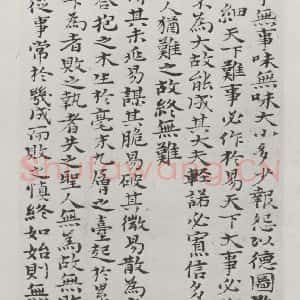 無事味無味大小多少報怨以德圖
細天下難事必作於易天下大事必
不為大故能成其大夫輕諾必寡信多
人猶難之故終無難
其未兆易謀其脆易破其微易散為
合抱之木生於毫末九層之臺起於累
下為者敗之執者失之聖人無為故無敗
從事常於幾成而敗慎終如始則無
Shufawang.CN